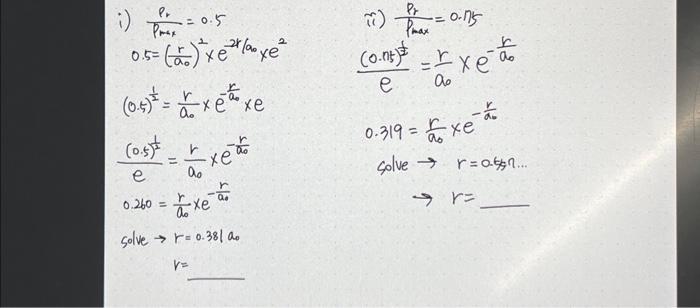 i) Pr/Pmax = 0.5
0.5 = (r/a₀)² × e^(-2r/a₀) × e²
(0.5)^(1/2) = r/a₀ × e^(-r/a₀) × e
(0.5)^(1/2)/e = r/a₀ × e^(-r/a₀)
0.260 = r/a₀ × e^(-r/a₀)
solve → r = 0.381 a₀
r = ____
ii) Pr/Pmax = 0.75
(0.75)^(1/2)/e = r/a₀ × e^(-r/a₀)
0.319 = r/a₀ × e^(-r/a₀)
solve → r = 0.557...
→ r = ____